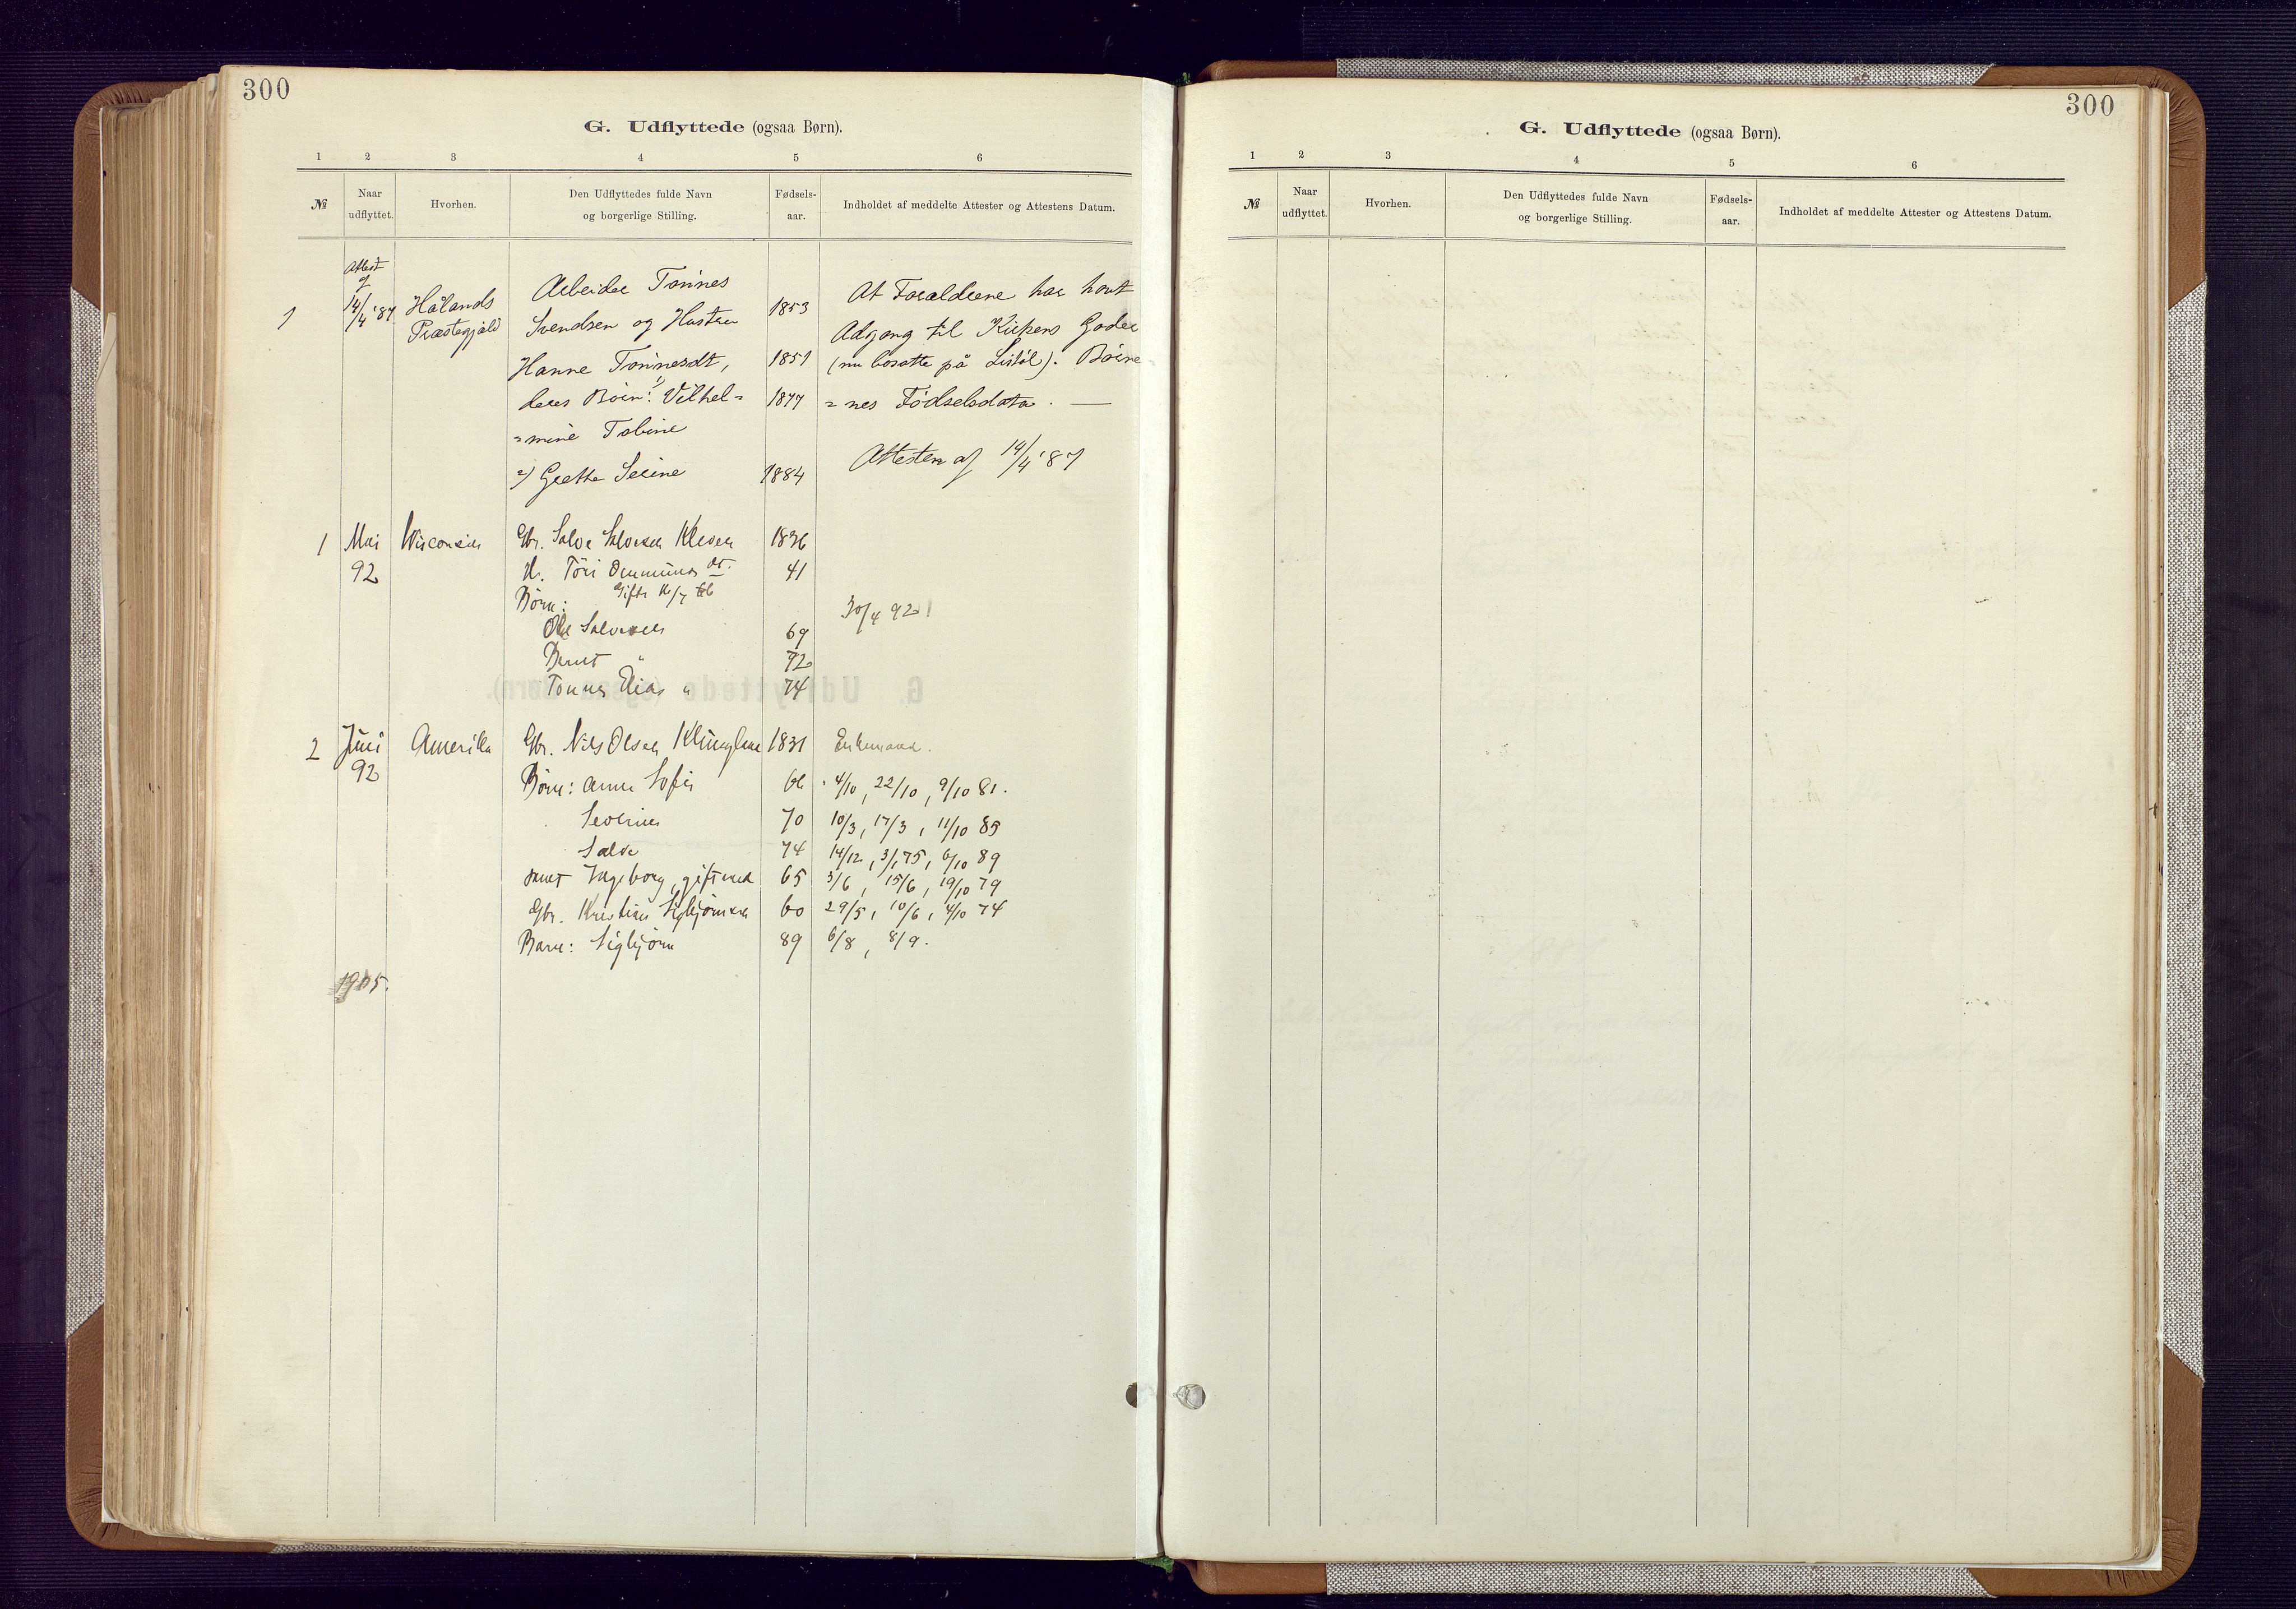 300
G. Udflyttede (ogsaa Børn).
1 2 3 4 5 6
№ Naar udflyttet. Hvorhen. Den Udflyttedes fulde Navn og borgerlige Stilling. Fødsels-aar. Indholdet af meddelte Attester og Attestens Datum.
Attest
af
1 14/4 '87 Hålands Arbeider Tønnes 1853 At Forældrene har havt
Præstegjæld Svendsen og Hustru Adgang til Kirkens Goder
Hanne Tønnesdt, 1851 (nu bosatte på Listøl). Børne
deres Børn: 1) Vilhel= 1877 =nes Fødselsdata. —
=mine Tobine
2) Grethe Serine 1884 Attesten af 14/4 '87
1 Mai Wisconsin Gbr. Salve Salvesen Kleven 1836
92 H. Tóri Osmunds dt. 41
Børn: Gifte 16/7
30/4 92
Ole Salvesen 69
Bernt " 72
Tønnes Elias " 74
2 Juni Amerika Gbr. Nils Olsen 1831 Enkemand.
92 Børn: Anna Sofie 66 4/10, 22/10, 9/10 81.
Severine 70 10/3, 17/3, 11/10 85
Salve 74 14/12, 3/1 75, 6/10 89
samt Ingeborg, gift med 65 3/6, 15/6, 19/10 79
Gbr. Kristian Sigbjørnsen 60 29/5, 10/6, 4/10 74
Barn: Sigbjørn 89 6/8, 8/9.
1905.
300
G. Udflyttede (ogsaa Børn).
1 2 3 4 5 6
№ Naar udflyttet. Hvorhen. Den Udflyttedes fulde Navn og borgerlige Stilling. Fødsels-aar. Indholdet af meddelte Attester og Attestens Datum.